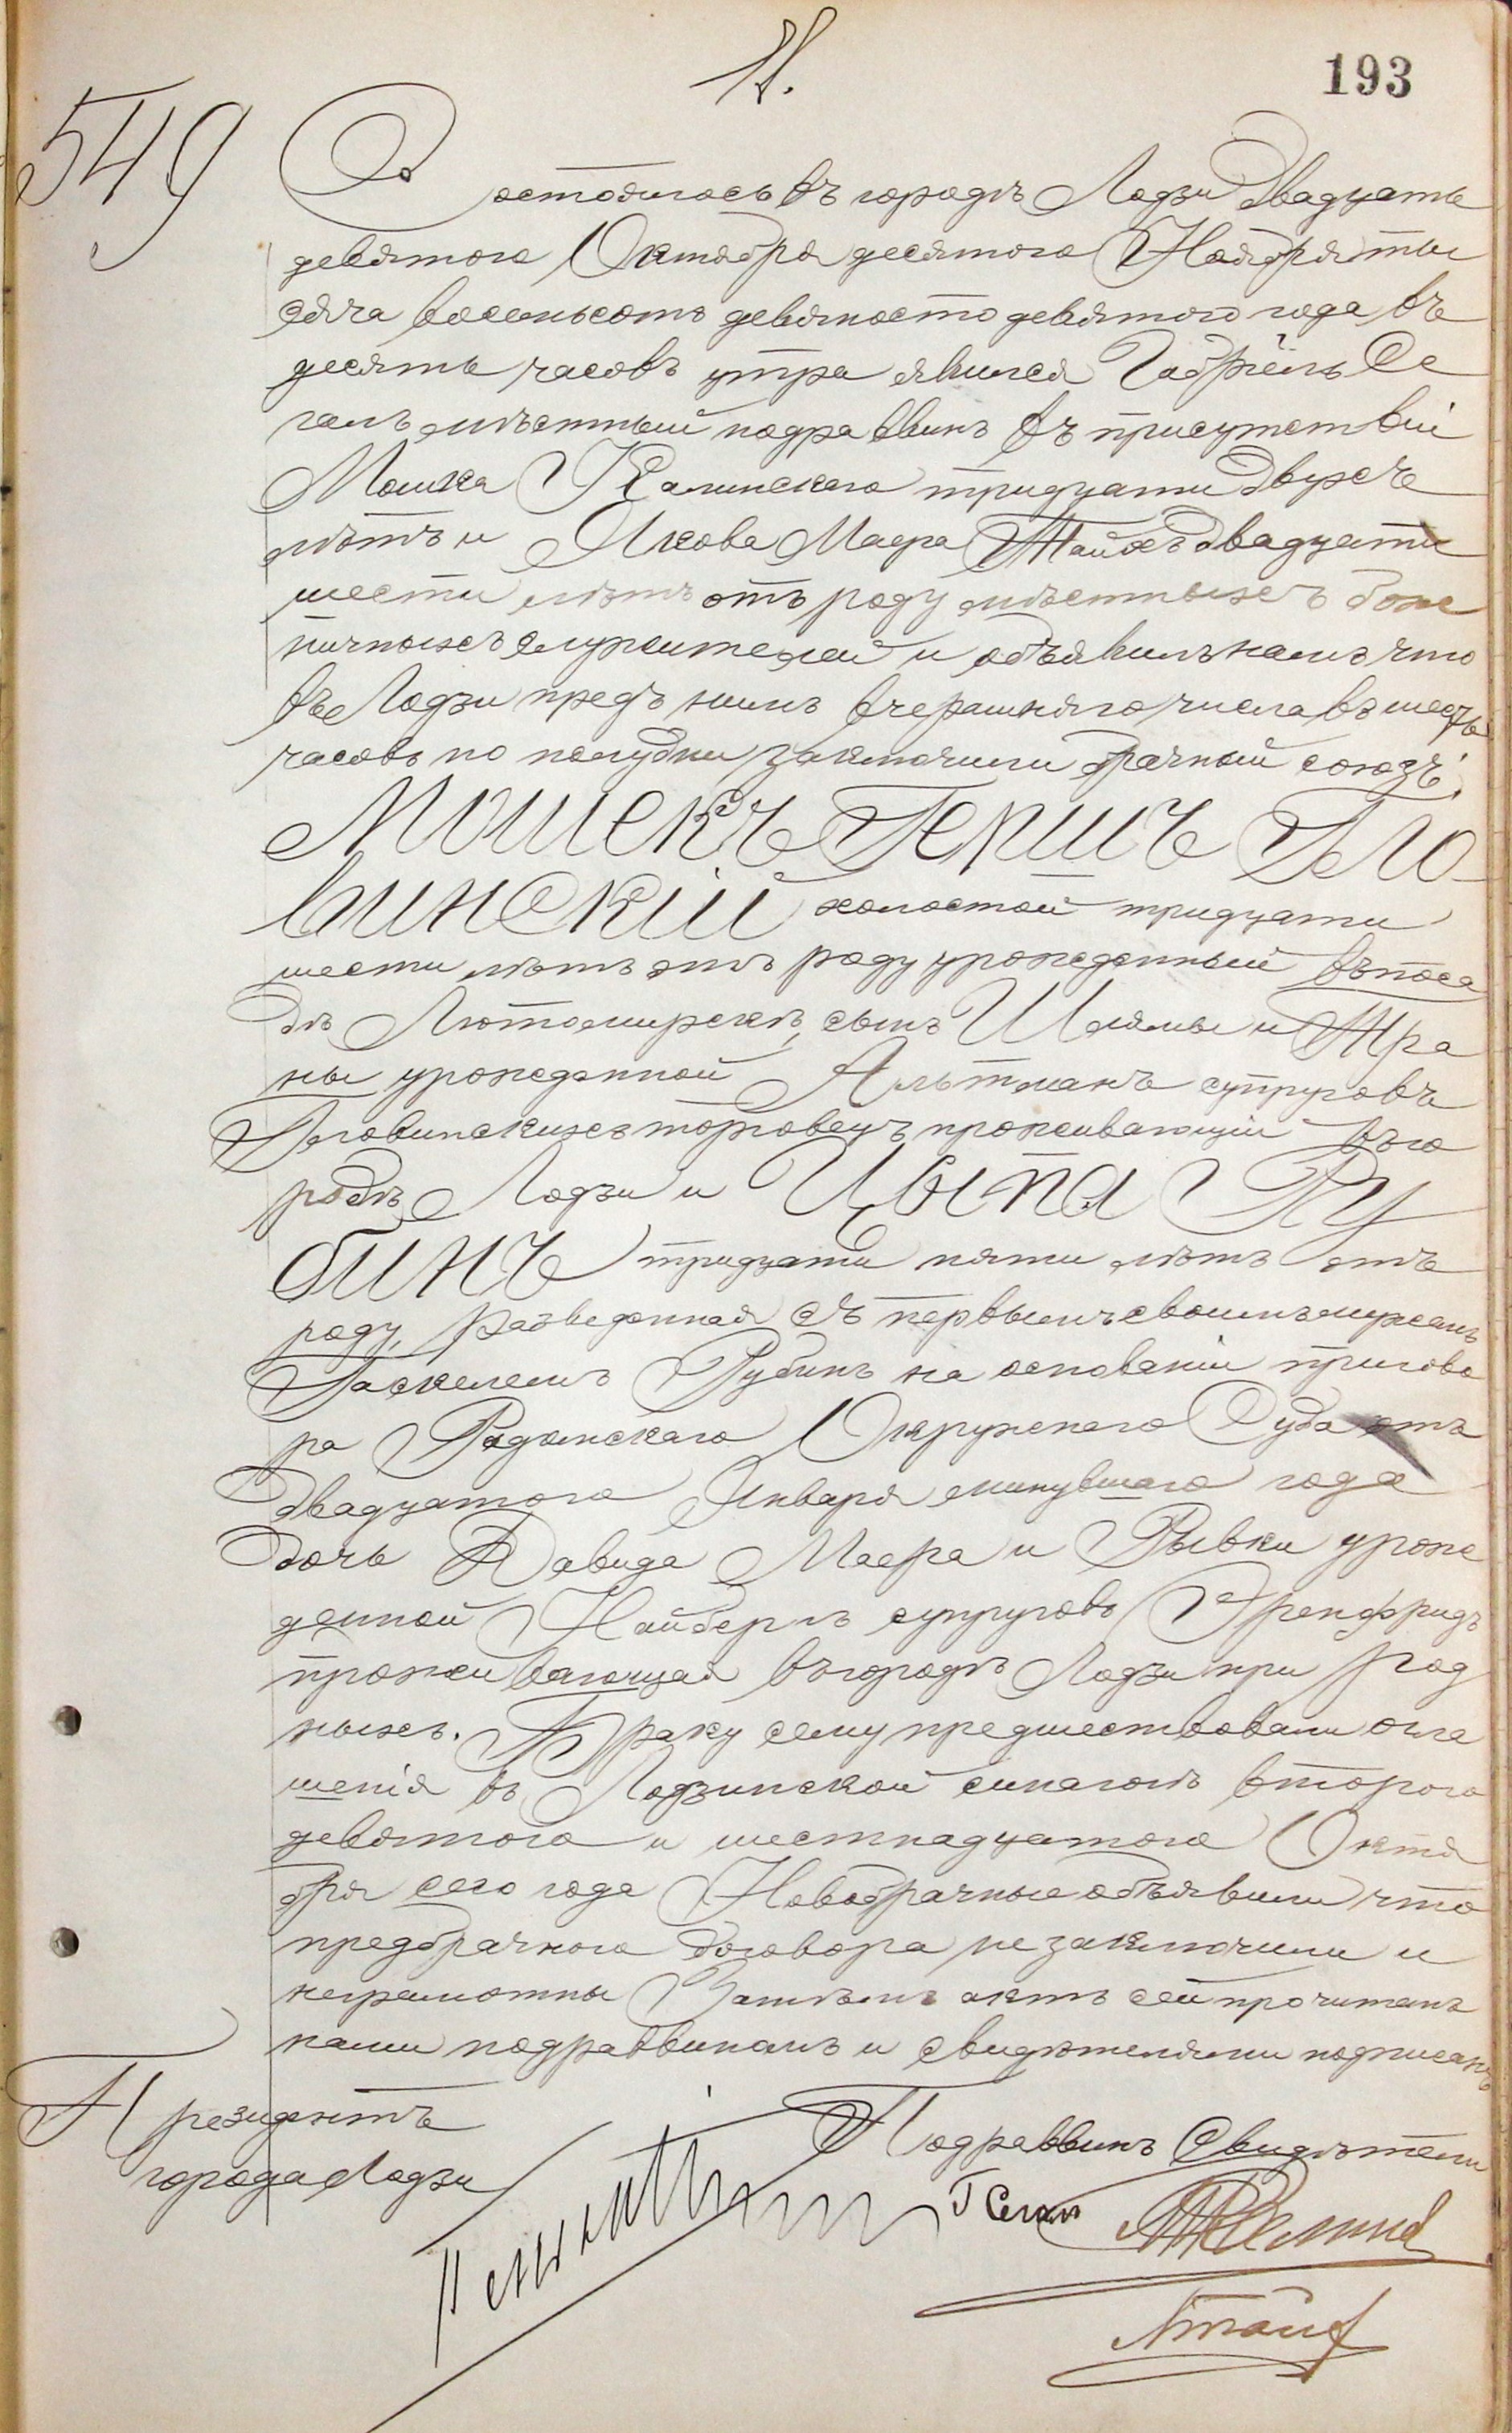 193
549
Состоялось въ городѣ Лодзи Двадцать
девятого Октября десятого Ноября ты
сяча восемьсотъ девяносто девятого года въ
десять часовъ утра явился Габріель Се
галъ мѣстный подраввинъ въ присутствіи
Мошка Калинскаго тридцати двухъ
лѣтъ и Якова Маера Тайхъ двадцати
шести лѣтъ отъ роду мѣстныхъ боже
ничныхъ служителей и объявилъ намъ что
въ Лодзи предъ нимъ вчерашняго числа въ шесть
часовъ по полудни заключили брачный союзъ:
Мошекъ Гершъ Гло-
винскій холостой тридцати
шести лѣтъ отъ роду урожденный въ поса
дѣ Лютомирскѣ, сынъ Шлямы и Тра
ны урожденной Альтманъ супруговъ
Гловинскихъ торговецъ проживающій въ го
родѣ Лодзи и Цыпа Ру
бинъ тридцати пяти лѣтъ отъ
роду, разведенная съ первымъ своимъ мужемъ
Хаскелемъ Рубинъ на основаніи пригово
ра Окружнаго Суда отъ
двадцатого Января минувшаго года
дочь Давида Маера и Рывки урож
денной супруговъ Эренфридъ
проживающая въ городѣ Лодзи при род
ныхъ. Браку сему предшествовали огла
шенія въ Лодзинской синагогѣ второго
девятого и шестнадцатого Октя
бря сего года Новобрачные объявили что
предбрачного договора не заключили и
неграмотны Затѣмъ актъ сей прочитанъ
нами подраввиномъ и свидѣтелями подписанъ
Президентъ
города Лодзи
Подраввинъ Свидѣтели
Г Сегал